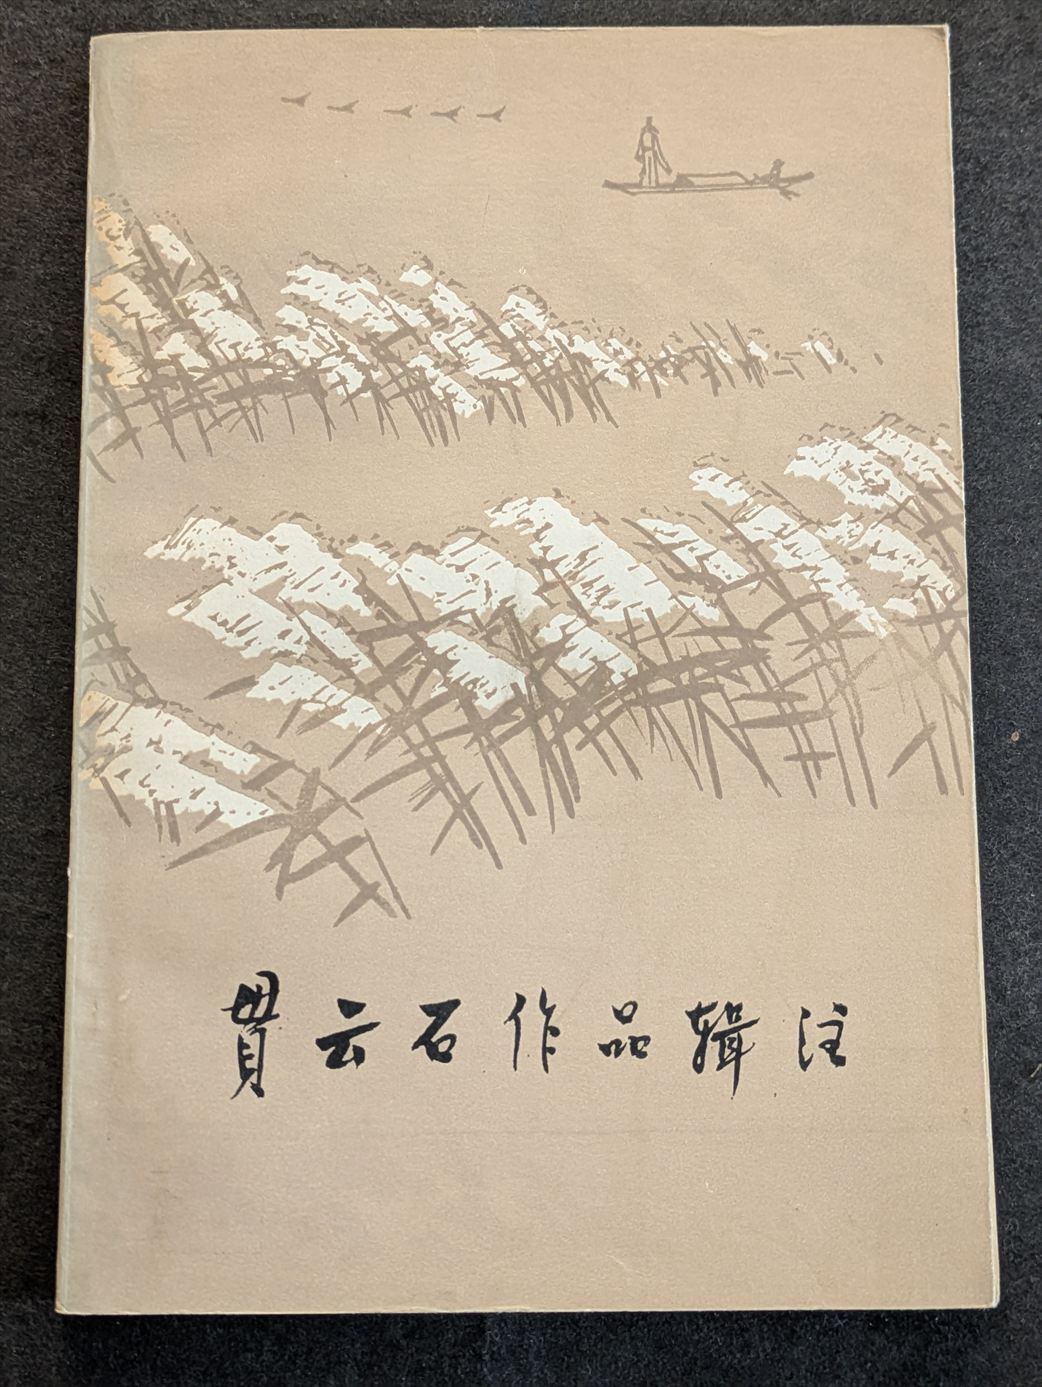 贯云石作品辑注